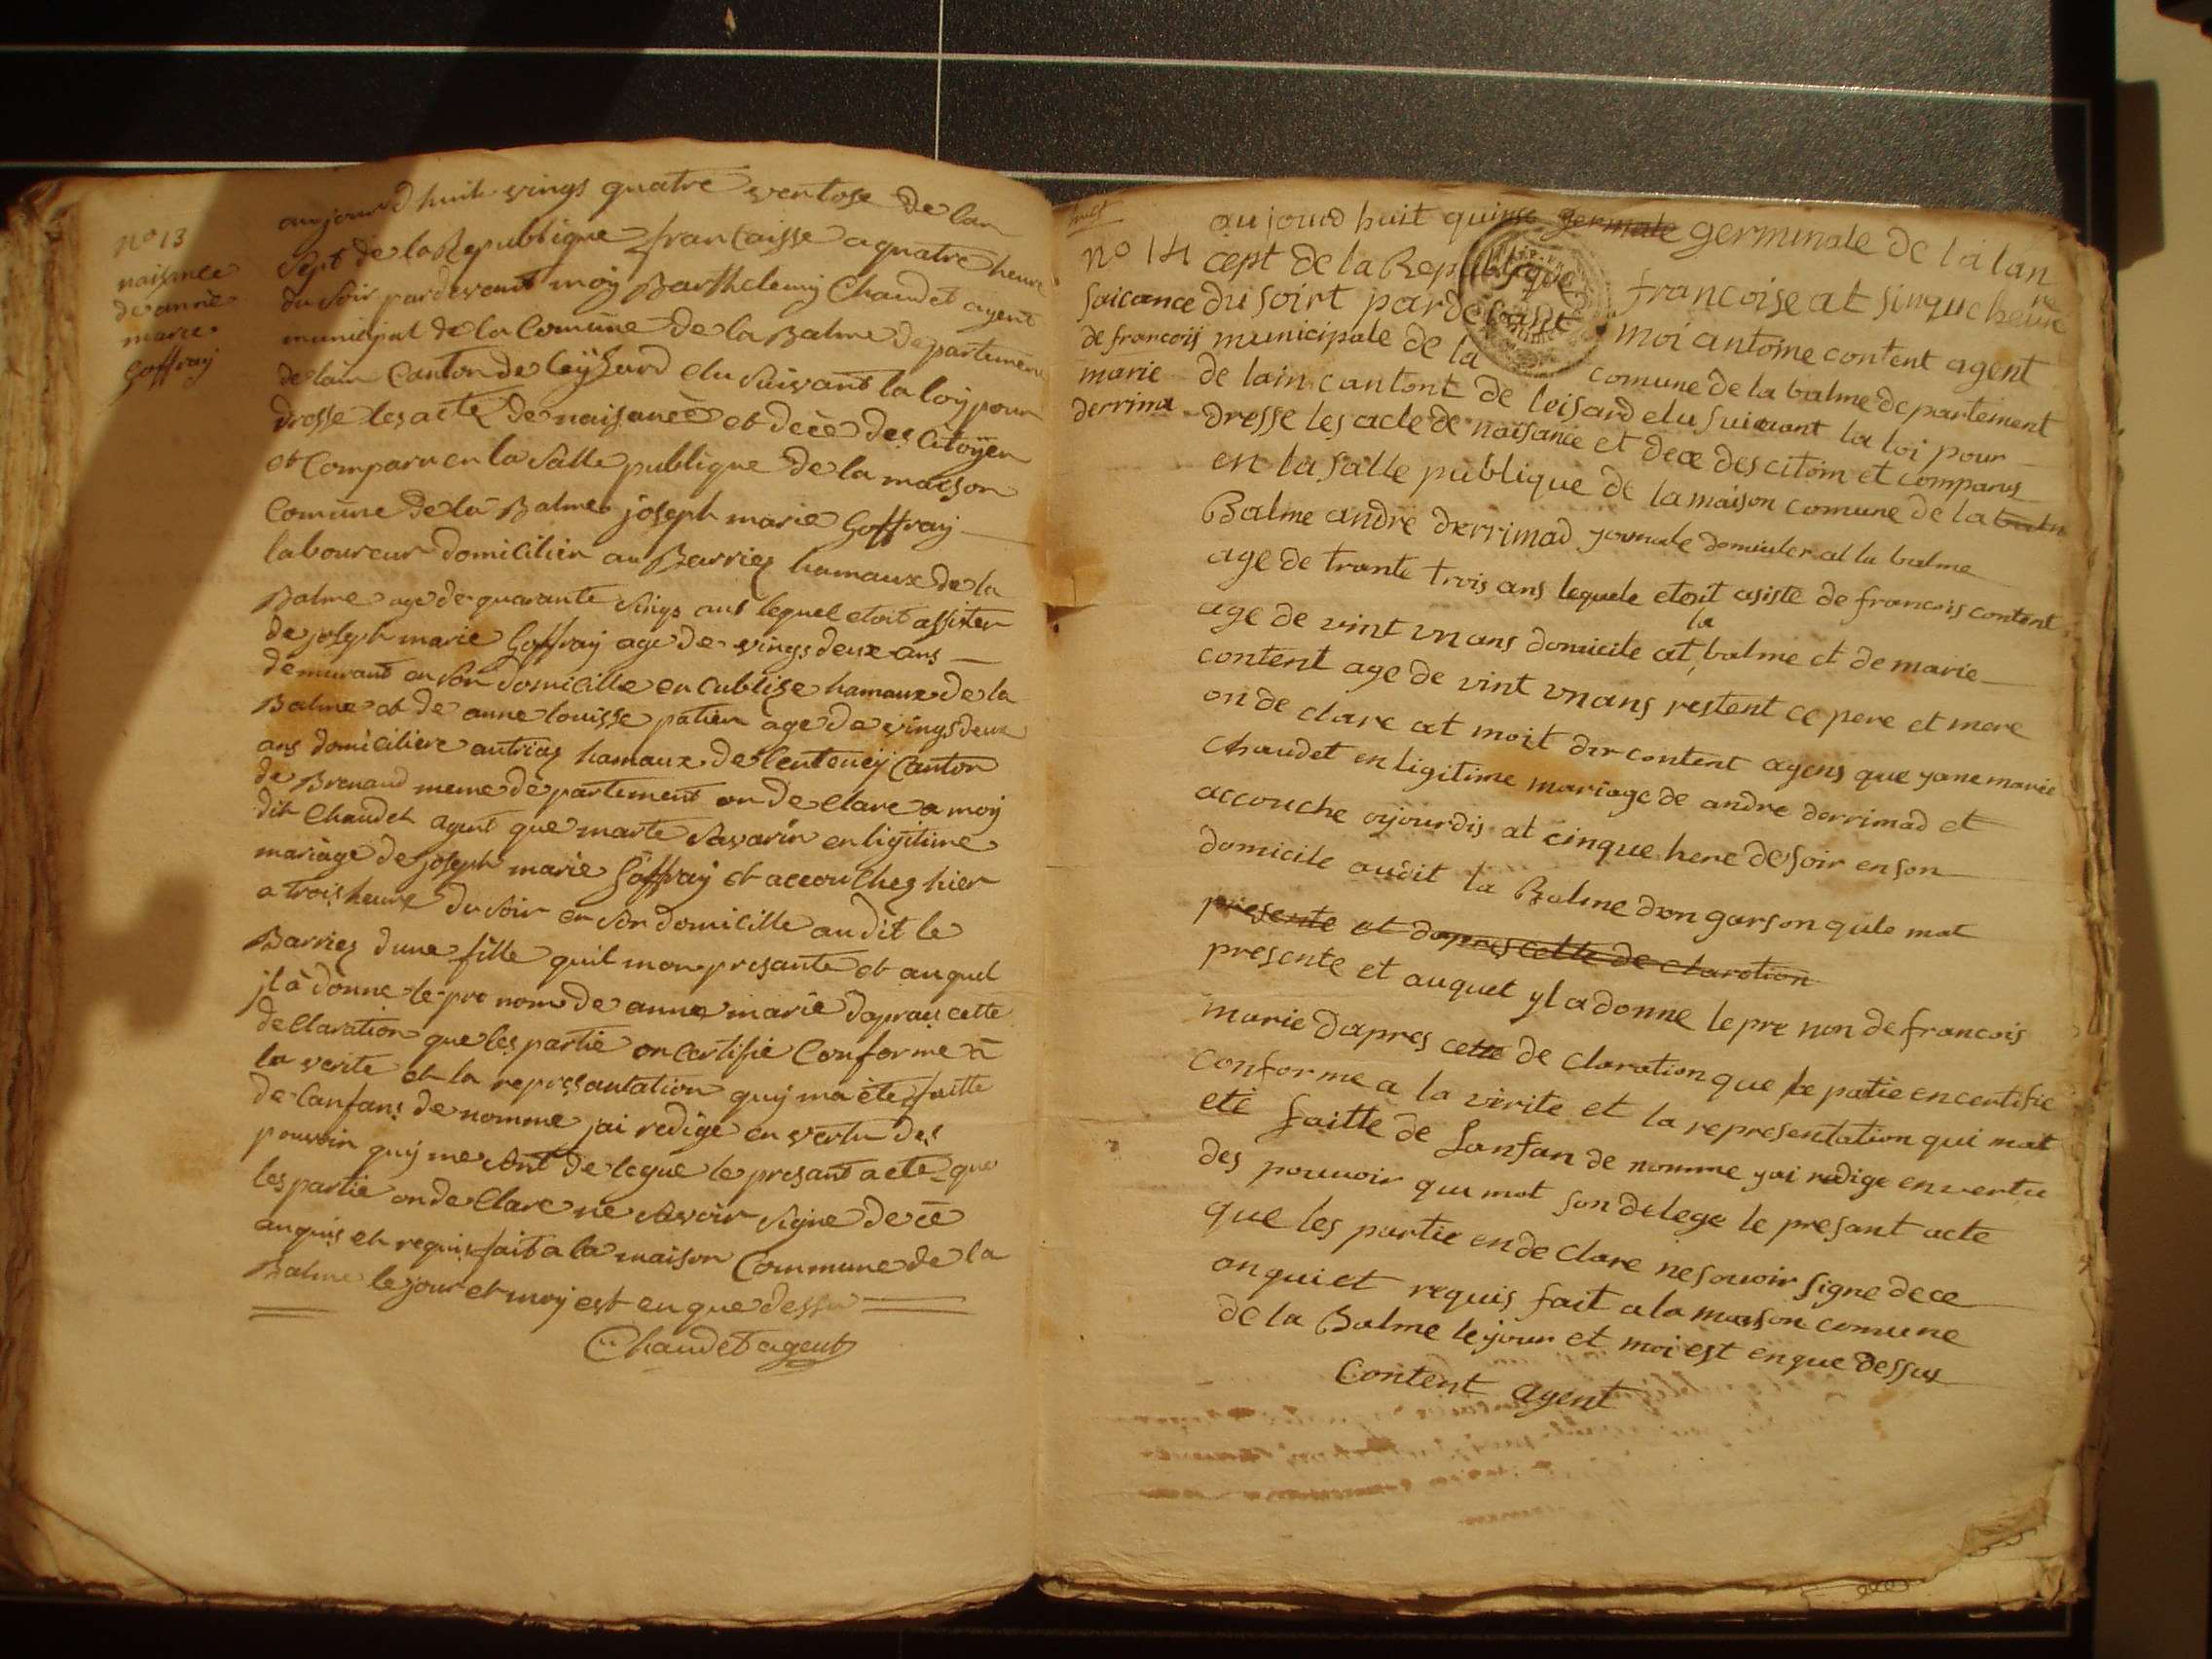 no 13
naisance
de anne
marie
Goffray
aujourd huit vings quatre ventose de lan
sept de la Republique francaisse a quatre heure
du soir pardevant moy Barthelemy Chaudet agent
municipal de la Comune de la Balme departement
de lain Canton de leyssard elu suivant la loy pour
drosse les acte de naisance et dece des Citoÿen
et Comparu en la salle publique de la maison
Comune de la Balme joseph marie Goffray
laboureur domicilier au Barriez hamaux de la
Balme age de quarante sinq ans lequel etoit assister
de joseph marie Goffray age de vings deux ans
demurant en son domicille en Cublize hamaux de la
Balme et de anne louisse patien age de vings deux
ans domiciliere autriaz hamaux de lenteney Canton
de Brenaud meme departement on de Clare a moy
dit Chaudet agent que marte savarin en ligitime
mariage de joseph marie Goffray et accouchez hier
a trois heure du soir en son domicille audit le
Barriez dune fille quil mon presante et auquel
jl à donne le pre nom de anne marie daprais cette
declaration que les partie on Certifie Conforme a
la verite et la represantation quy ma ete faitte
de lanfans de nomme jai redige en vertu des
pouvoir quy me sont de legue le presant acte que
les partie on de Clare ne savoir signe de ce
anquis et requis fait a la maison Commune de la
Balme le jour et moy est en que dessu
Chaudet agent
no 14
saicance
de francois
marie
derrima
aujourd huit quinse germale germinale de la lan
cept de la Republique francoise at sinque heure
du soirt pardevant moi antoine content agent
municipale de la comune de la balme departement
de lain cantont de leisard elu suivant la loi pour
dresse les acte de naisance et dece des citoin et comparus
en la salle publique de la maison comune de la balm
Balme andre derrimad jornale domicilier at la balme
age de trante trois ans lequele etoit asiste de francois content
age de vint un ans domicile at la balme et de marie
content age de vint un ans restent ce pere et mere
on de clare at moit dir content agens que jane marie
chaudet en ligitime mariage de andre derrimad et
accouche ojourdis at cinque here de soir en son
domicile audit la Balme don garson quile mat
presente et dapres cette de claration
presente et auquet yl a donne le pre non de francois
marie dapres cette de claration que le patie en certifie
conforme a la verite et la representation qui mat
ete faitte de Lanfan de nomme jai redige en vertu
des pouvoir qui mot son delege le presant acte
que les partie en de clare ne souvoir signe de ce
anquiet requis fait a la maison comune
de la Balme le jour et moi est en que dessus
Content agent